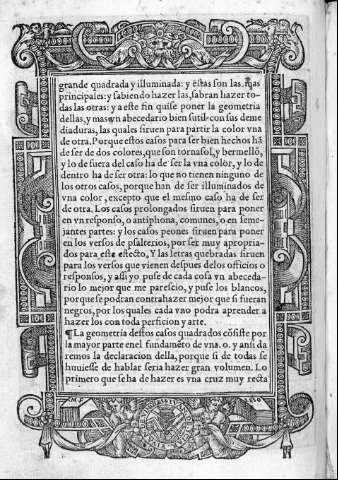 grande quadrada y illuminada: y estas son las ma̅s
principales: y sabiendo hazer las, sabran hazer to-
das las otras: y a este fin quise poner la geometria
dellas, y mas vn abecedario bien sutil con sus deme
diaduras, las quales siruen para partir la color vna
de otra. Porque estos casos para ser bien hechos hã
de ser de dos colores, que son tornasol, y bermellõ,
y lo de fuera del caso ha de ser la vna color, y lo de
dentro ha de ser otra: lo que no tienen ninguno de
los otros casos, porque han de ser illuminados de
vna color, excepto que el mesmo caso ha de ser
de otra. Los casos prolongados siruen para poner
en vn responso, o antiphona, comunes, o en seme-
jantes partes: y los casos peones siruen para poner
en los versos de psalterios, por ser muy apropria-
dos para este efecto, Y las letras quebradas siruen
para los versos que vienen despues delos officios o
responsos, y assi yo puse de cada cosa vn abeceda-
rio lo mejor que me parescio, y puse los blancos,
porque se podran contrahazer mejor que si fueran
negros, por los quales cada vno podra aprender a
hazer los con toda perficion y arte.
¶ La geometria destos casos quadrados cõsiste por
la mayor parte enel fundamẽto de vna. o. y ansi da
remos la declaracion della, porque si de todas se
huuiesse de hablar seria hazer gran volumen. Lo
primero que se ha de hazer es vna cruz muy recta